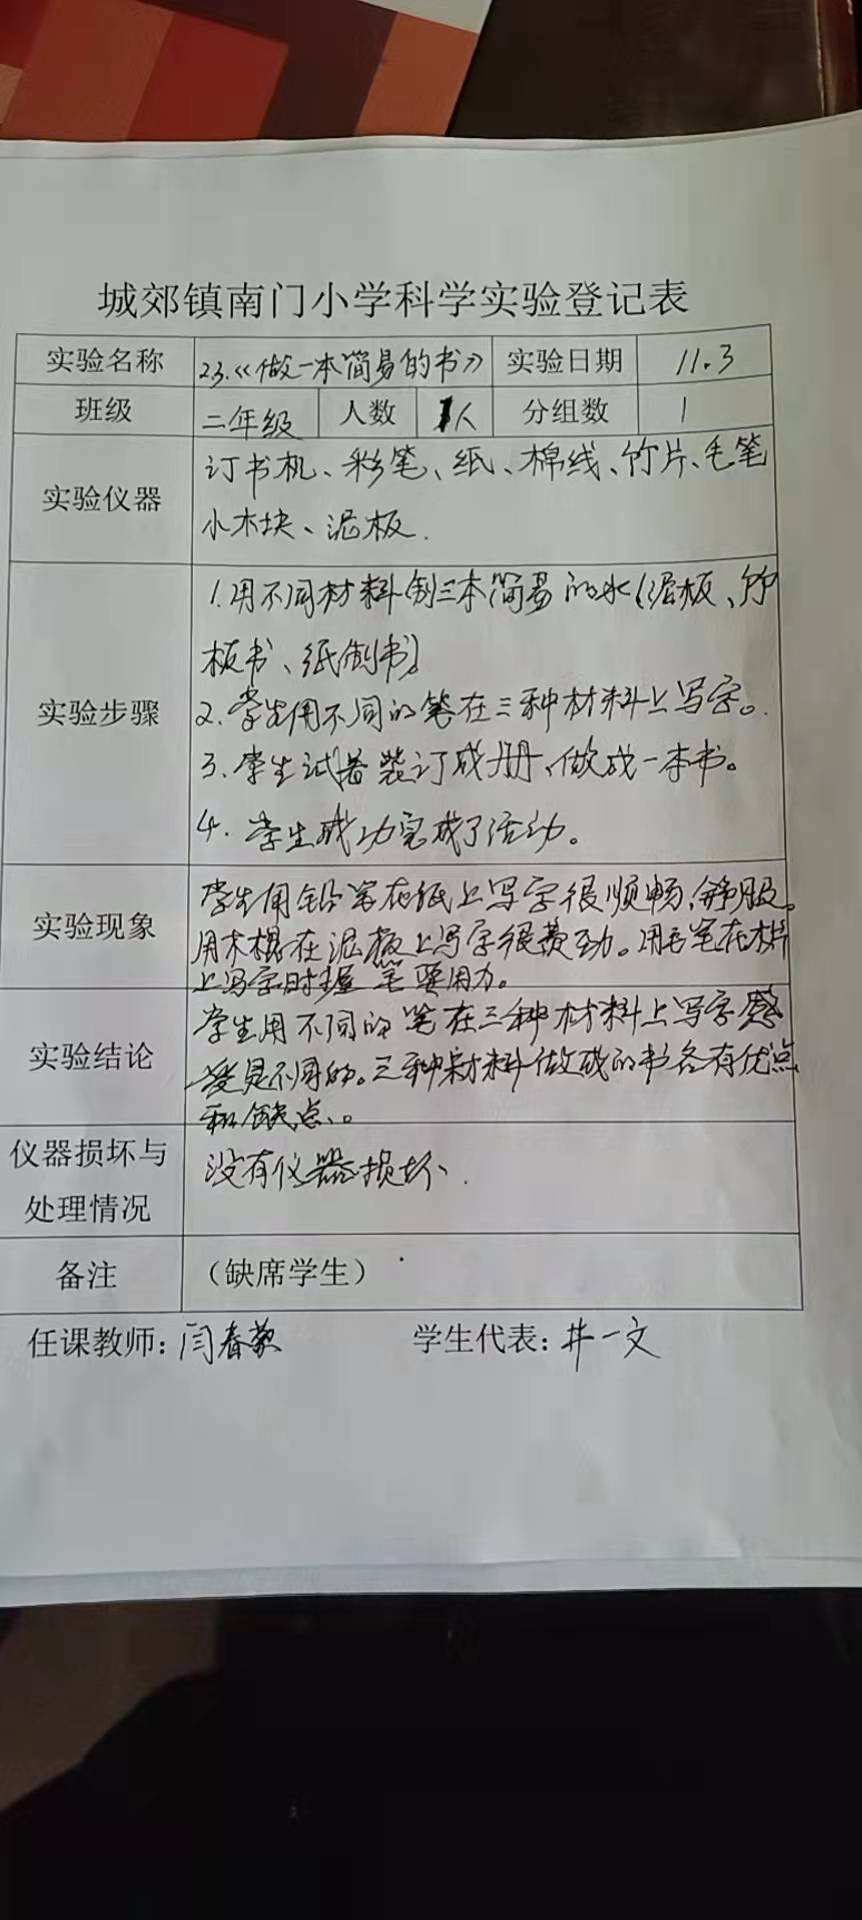 城郊镇南门小学科学实验登记表
实验名称 2.3.《做一本简易的书》 实验日期 11.3
班级 二年级 人数 1人 分组数 1
实验仪器
订书机、彩笔、纸、棉线、竹片、毛笔
小木块、泥板.
实验步骤
1.用不同材料制三本简易的书(泥板、竹
板书、纸制书)
2.学生用不同的笔在三种材料上写字。
3.学生试着装订成册、做成一本书。
4.学生成功完成了活动。
实验现象
学生用铅笔在纸上写字很顺畅,舒服。
用木棍在泥板上写字很费劲。用毛笔在木片
上写字时握笔要用力。
实验结论
学生用不同的笔在三种材料上写字感
受是不同的。三种材料做成的书各有优点
和缺点、。
仪器损坏与
处理情况
没有仪器损坏、.
备注 (缺席学生)
任课教师: 闫春 学生代表: 井一文